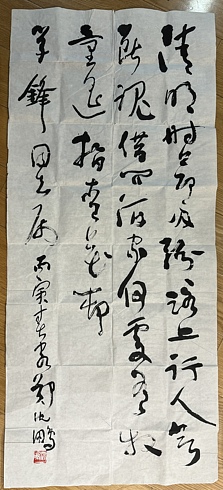 清明时节雨纷纷路上行人欲
断魂借问酒家何处有牧
童遥指杏花邨
锋同志属 丙寅春 郑鹏